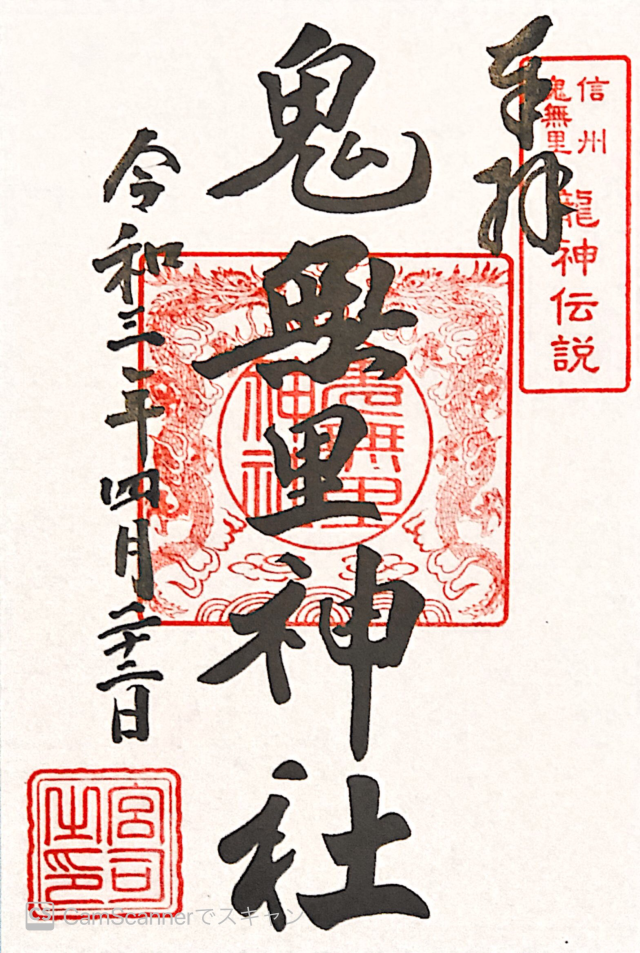 奉拝
信州
鬼無里
龍神伝説
鬼無里神社
鬼無里
神社
令和三年四月二十二日
宮司
之印
CamScannerでスキャン